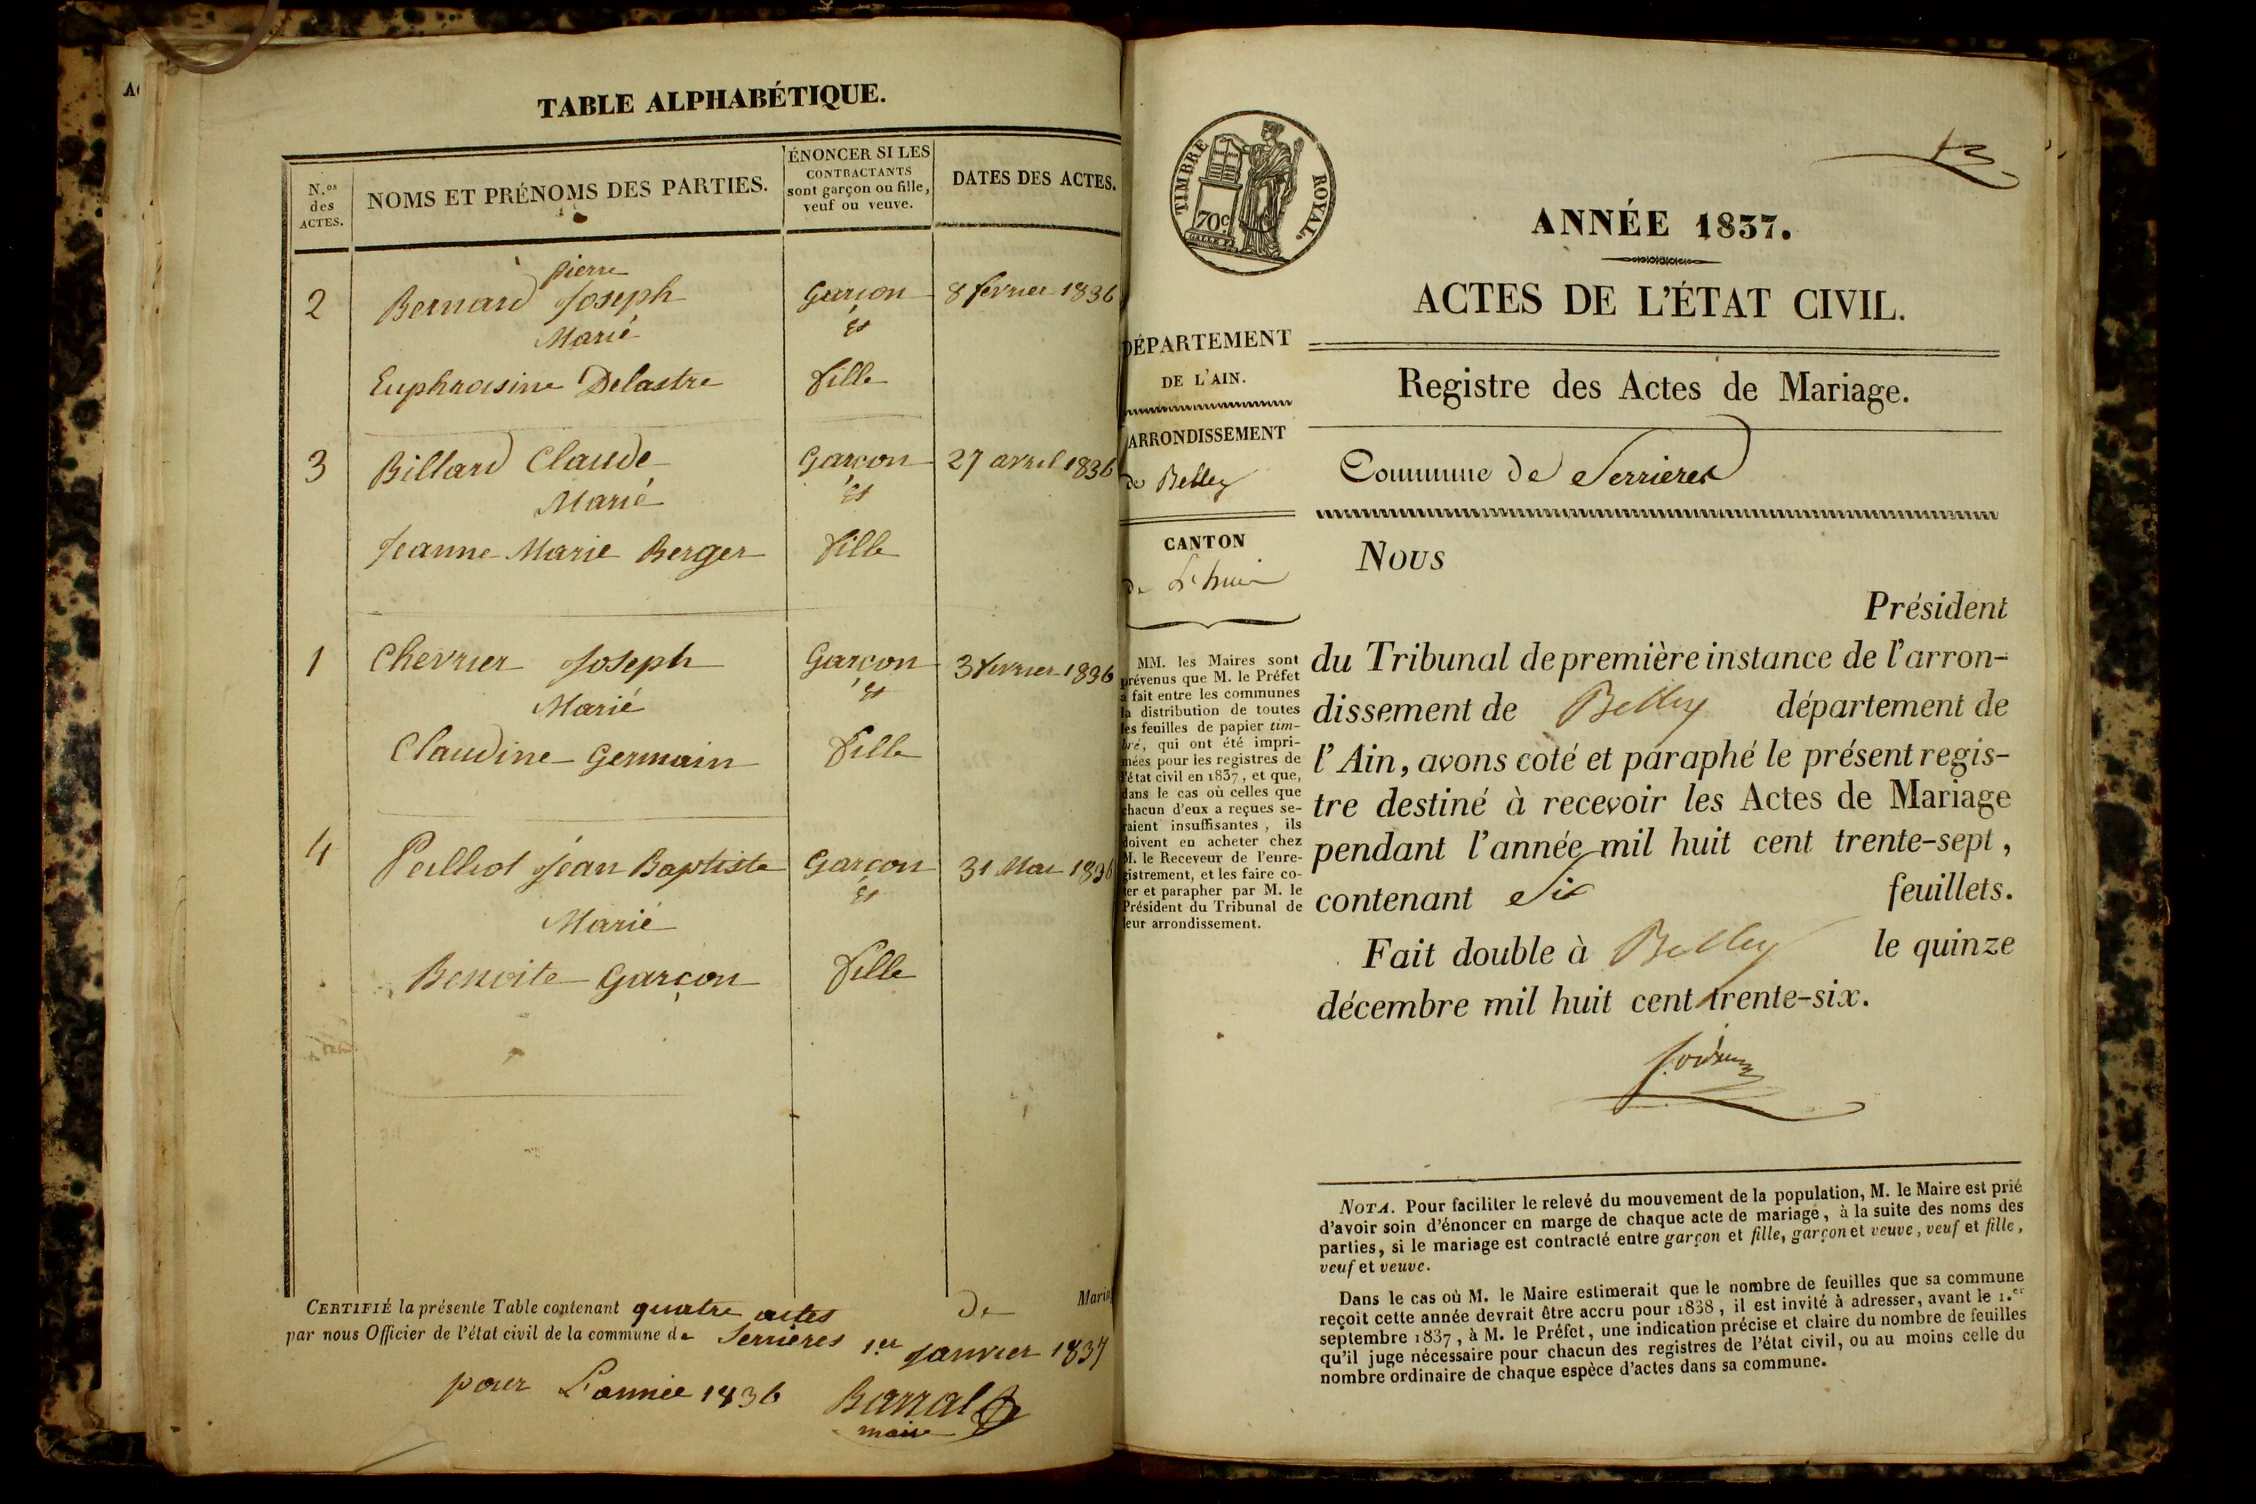 TABLE ALPHABÉTIQUE.
N.os des ACTES.
NOMS ET PRÉNOMS DES PARTIES.
ÉNONCER SI LES
CONTRACTANTS
sont garçon ou fille,
veuf ou veuve.
DATES DES ACTES.
pierre
2 Bernard Joseph Garçon 8 fevrier 1836
Marié et
Euphrosine Delastre fille
3 Billard Claude Garçon 27 avril 1836
Marié et
Jeanne Marie Berger fille
1 Chevrier Joseph Garçon 3 fevrier 1836
Marié et
Claudine Germain fille
4 Jean Baptiste Garçon 31 Mai 1836
Marié et
Benoite Garçon fille
CERTIFIÉ la présente Table contenant quatre actes de Maria
par nous Officier de l'état civil de la commune de Serrières 1.er Janvier 1837
pour L'année 1836 Barral
maire
TIMBRE ROYAL.
70c
13
ANNÉE 1837.
ACTES DE L'ÉTAT CIVIL.
DÉPARTEMENT
DE L'AIN.
ARRONDISSEMENT
de Belley
CANTON
de L'huis
MM. les Maires sont
prévenus que M. le Préfet
a fait entre les communes
la distribution de toutes
les feuilles de papier tim-
bré, qui ont été impri-
mées pour les registres de
l'état civil en 1837, et que,
dans le cas où celles que
chacun d'eux a reçues se-
raient insuffisantes, ils
doivent en acheter chez
M. le Receveur de l'enre-
gistrement, et les faire co-
ter et parapher par M. le
Président du Tribunal de
leur arrondissement.
Registre des Actes de Mariage.
Commune de Serrieres
Nous
Président
du Tribunal de première instance de l'arron-
dissement de Belley département de
l'Ain, avons coté et paraphé le présent regis-
tre destiné à recevoir les Actes de Mariage
pendant l'année mil huit cent trente-sept,
contenant Six feuillets.
Fait double à Belley le quinze
décembre mil huit cent trente-six.
NOTA. Pour faciliter le relevé du mouvement de la population, M. le Maire est prié
d'avoir soin d'énoncer en marge de chaque acte de mariage, à la suite des noms des
parties, si le mariage est contracté entre garçon et fille, garçon et veuve, veuf et fille,
veuf et veuve.
Dans le cas où M. le Maire estimerait que le nombre de feuilles que sa commune
reçoit cette année devrait être accru pour 1838, il est invité à adresser, avant le 1.er
septembre 1837, à M. le Préfet, une indication précise et claire du nombre de feuilles
qu'il juge nécessaire pour chacun des registres de l'état civil, ou au moins celle du
nombre ordinaire de chaque espèce d'actes dans sa commune.